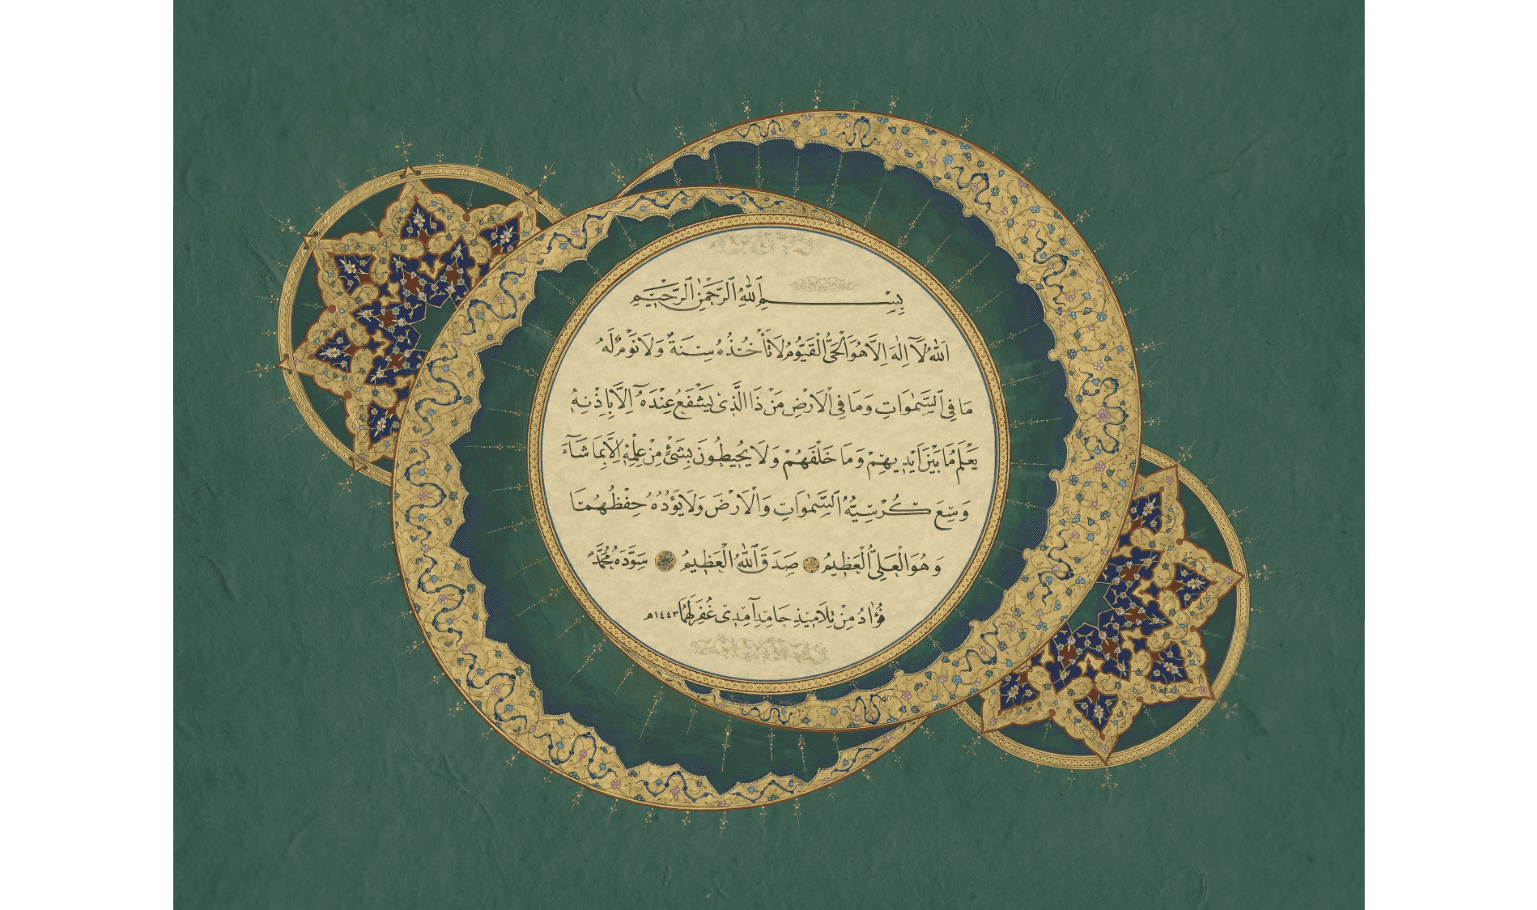 بِسْمِ اللهِ الرَّحْمٰنِ الرَّحِيمِ
اَللهُ لَآ اِلٰهَ اِلَّا هُوَ الْحَىُّ الْقَيُّومُ لَا تَأْخُذُهُ سِنَةٌ وَلَا نَوْمٌ لَهُ
مَا فِى السَّمٰوَاتِ وَمَا فِى الْاَرْضِ مَنْ ذَا الَّذِى يَشْفَعُ عِنْدَهُٓ اِلَّا بِاِذْنِهِ
يَعْلَمُ مَا بَيْنَ اَيْدِيهِمْ وَمَا خَلْفَهُمْ وَلَا يُحِيطُونَ بِشَىْءٍ مِنْ عِلْمِهِٓ اِلَّا بِمَا شَآءَ
وَسِعَ كُرْسِيُّهُ السَّمٰوَاتِ وَالْاَرْضَ وَلَا يَؤُدُهُ حِفْظُهُمَا
وَهُوَ الْعَلِىُّ الْعَظِيمُ صَدَقَ اللهُ الْعَظِيمُ سَوَّدَهُ مُحَمَّد
فُؤَاد مِنْ تِلَامِيذِ حَامِدِ آمِدِى غُفِرَ لَهُمَا ١٤٤٣هـ